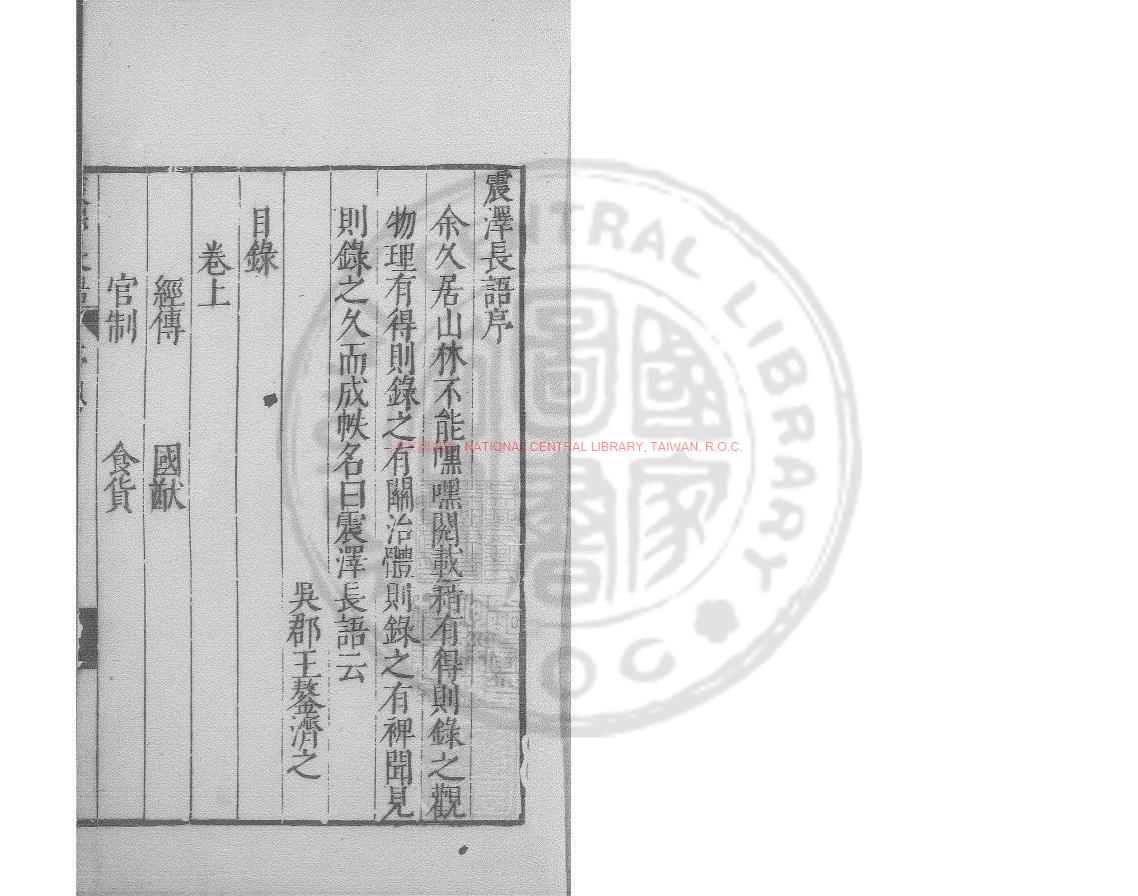 震澤長語序
余久居山林不能嘿嘿閱載籍有得則錄之觀
物理有得則錄之有關治體則錄之有裨聞見
則錄之久而成帙名曰震澤長語云
吳郡王鏊濟之
目錄
卷上
經傳 國猷
官制 食貨
NATIONAL CENTRAL LIBRARY, TAIWAN, R.O.C.
CENTRAL LIBRARY
國家圖書館